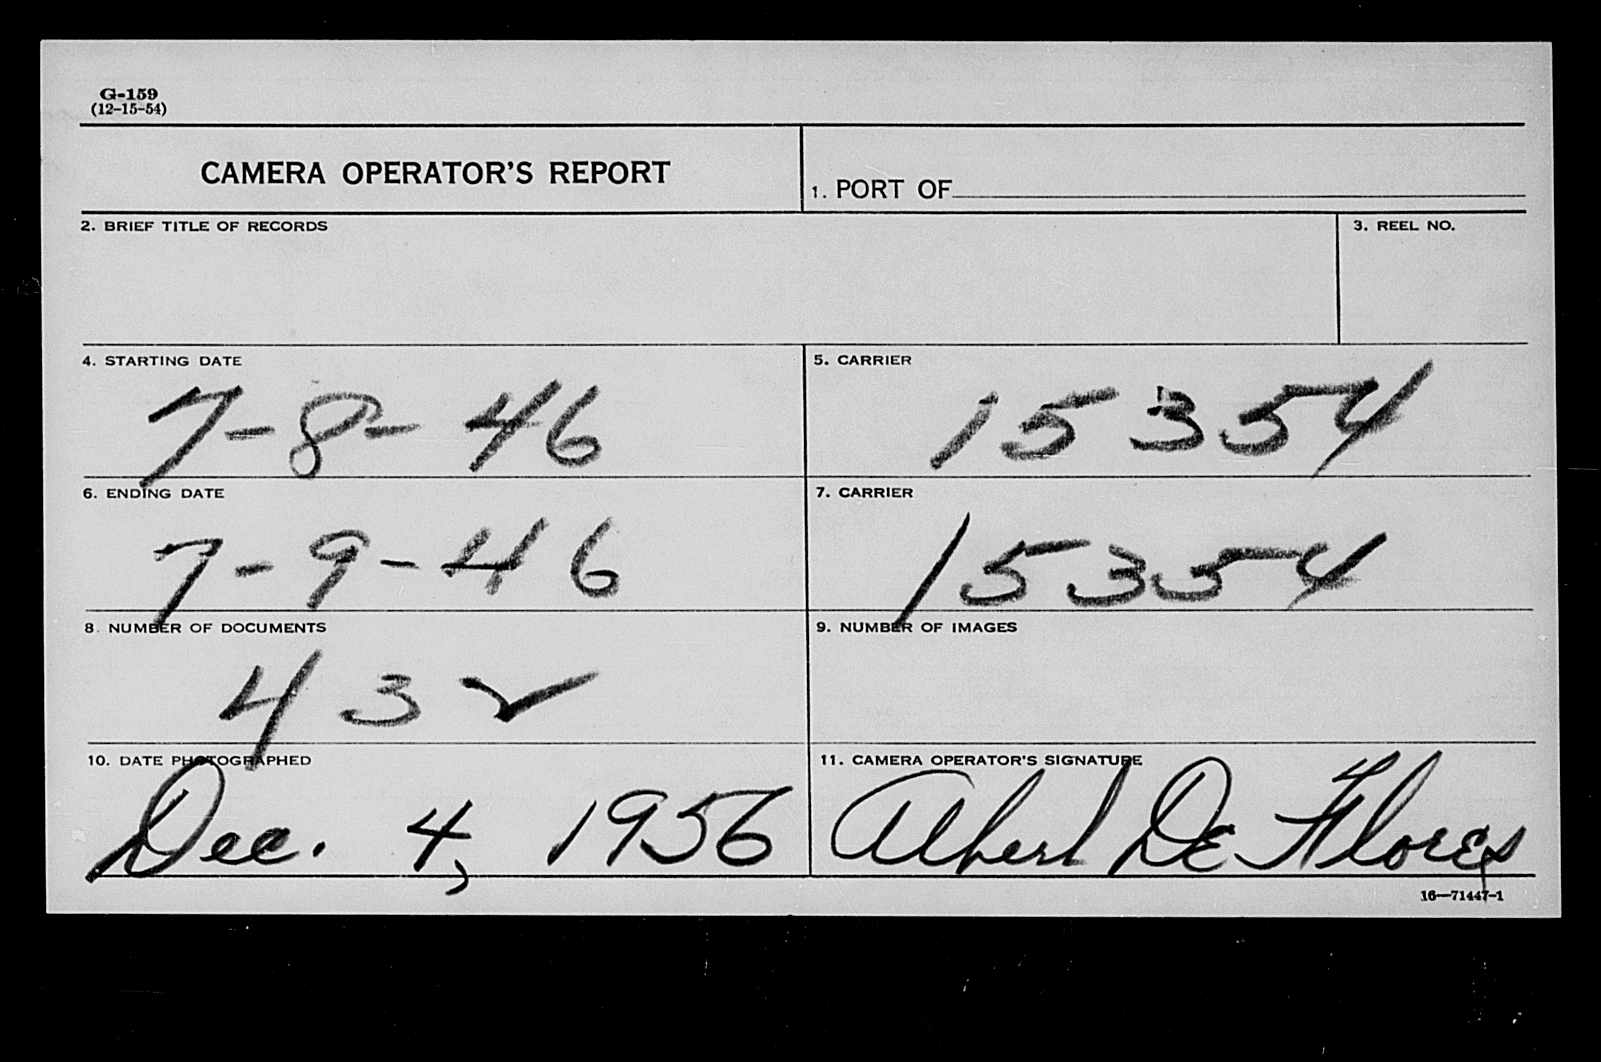 G-159
(12-15-54)
CAMERA OPERATOR'S REPORT
1. PORT OF
2. BRIEF TITLE OF RECORDS
3. REEL NO.
4. STARTING DATE
7-8-46
5. CARRIER
15354
6. ENDING DATE
7-9-46
7. CARRIER
15354
8. NUMBER OF DOCUMENTS
43 ✓
9. NUMBER OF IMAGES
10. DATE PHOTOGRAPHED
Dec. 4, 1956
11. CAMERA OPERATOR'S SIGNATURE
Albert De Flores
16—71447-1